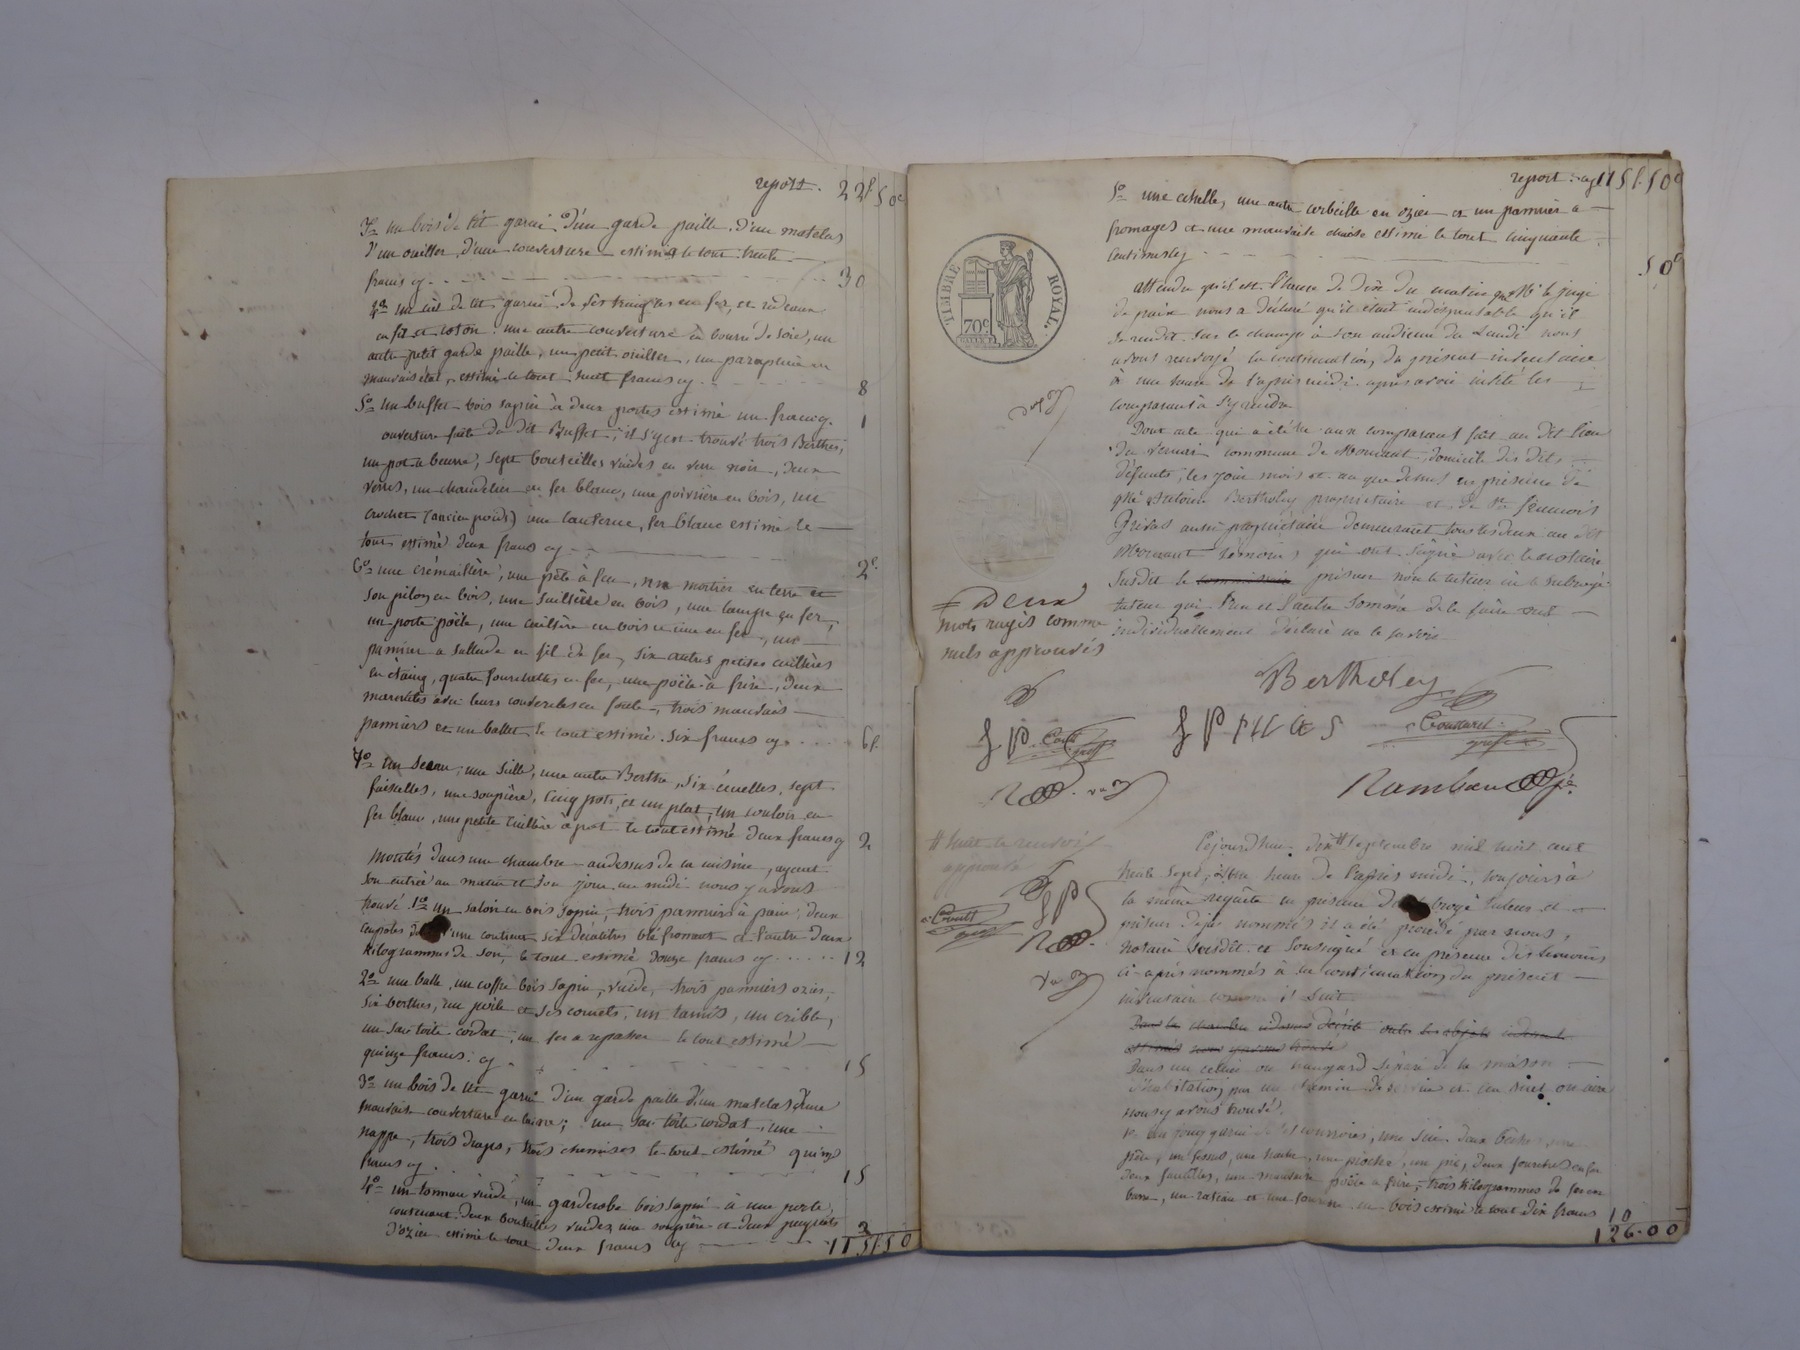 report. 22f 50c
3o un bois de lit garni d'un garde paille, d'un matelas
d'un oreiller, d'une couverture estimés le tout trente
francs cy 30
4o un ciel de lit garni de ses tringles en fer, et rideaux
en fil et coton. une autre couverture en bourre de soie, un
autre petit garde paille, un petit oreiller, un parapluie en
mauvais état, estimé le tout huit francs cy 8
5o un buffet bois sapin à deux portes estimé un franc cy. 1
ouverture faite du dit Buffet, il s'y est trouvé trois Berthes,
un pot à beurre, sept bouteilles vuides en verre noir, deux
verres, un chandelier en fer blanc, une poivrière en bois, un
crochet (ancien poids) une lanterne, fer blanc estimé le
tout estimé deux francs cy 2f.
6o une crémaillère, une pèle à feu, un mortier en terre et
son pilon en bois, une sallière en bois, une lampe en fer,
un porte poële, une cuillère en bois et une en fer, un
pannier a sallade en fil de fer, six autres petites cuillères
en étaing, quatre fourchettes en fer, une poële à frire, deux
marmites avec leurs couvercles en fonte, trois mauvais
panniers et un ballet le tout estimé six francs cy 6f.
7o un seau, une seille, une autre Berthe, six écuelles, sept
faisselles, une soupière, cinq pots, et un plat, un couloir en
fer blanc, une petite cuillère à pot le tout estimé deux francs cy 2
Montés dans une chambre audessus de la cuisine, ayant
son entrée au matin et son jour au midi nous y avons
trouvé 1o un saloir en bois sapin, trois panniers à pain, deux
l'une contient six décalitres blé froment et l'autre deux
kilogrammes de son, le tout estimé douze francs cy 12
2o une balle, un coffre bois sapin, vuide, trois panniers ozier,
six berthes, un poële et ses cornets, un tamis, un crible,
un sac toile cordat, un fer a repasser le tout estimé
quinze francs. cy 15
3o un bois de lit garni d'un garde paille d'un matelas d'une
mauvaise couverture en laine; un sac toile cordat, une
nappe, trois draps, trois chemises le tout estimé quinze
francs cy 15
4o un tonneau vuide, un garderobe bois sapin à une porte,
contenant deux bouteilles vuides, une soupière et deux paquets
d'ozier estimé le tout deux francs cy 2
115f.50
report. cy 115f.50c
5o une échelle, une autre corbeille en ozier et un pannier à
fromages et une mauvaise chaise estimé le tout cinquante
centimes cy 50c
attendu qu'il est l'heure de dix du matin que Mr le juge
de paix nous a déclaré qu'il était indispensable qu'il
se rendit sur le champ à son audience du Lundi nous
avons renvoyé la continuation du présent inventaire
à une heure de l'après midi après avoir invité les
comparants à s'y rendre
Dont acte qui a été lu aux comparants fait au dit lieu
du commune de Mornant, domicile des dits
défunts, les jour mois et an que dessus en présence de
Antoine Bertholey propriétaire et de Sr
aussi propriétaire demeurant tous les deux au dit
Mornant témoins qui ont signé avec le notaire
susdit le priseur non le tuteur ni le subrogé
tuteur qui l'un et l'autre sommés de le faire ont
individuellement déclaré ne le savoir
= Deux
mots rayés comme
nuls approuvés
Bertholey
# huit le renvoi
approuvé
Cejourdhui dix # septembre mil huit cent
trente sept, heure de l'après midi, toujours à
la même requête en présence du tuteur et
priseur déjà nommés il a été procédé par nous,
notaire susdit et soussigné et en présence des témoins
ci-après nommés à la continuation du présent
inventaire comme il suit
Dans un cellier ou hangard séparé de la maison
d'habitation par un chemin
nous y avons trouvé.
1o un joug garni de ses courroies, une scie, deux
une pioche, un pic, deux fourches en fer
deux faucilles, une mauvaise poële à frire, trois kilogrammes de fer en
barre, un rateau et une fourche en bois estimé le tout dix francs 10
126.00
TIMBRE ROYAL.
70c